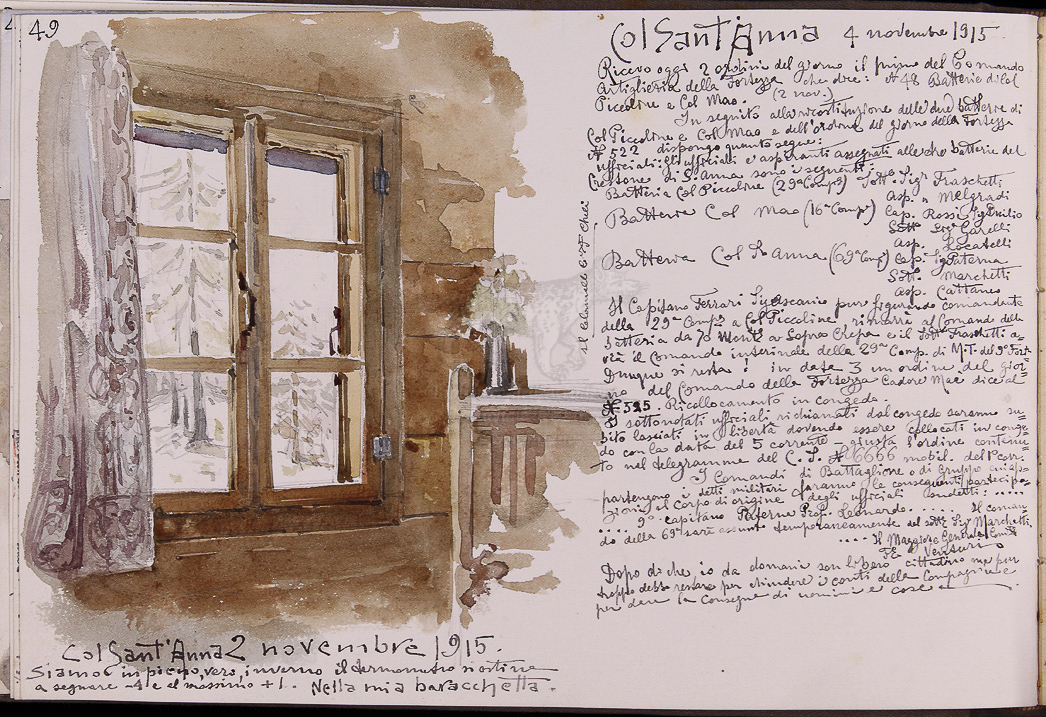 49
Col Sant'Anna 2 novembre 1915.
Siamo in pieno, vero, inverno il termometro si ostina
a segnare -4 e al massimo +1. Nella mia baracchetta.
Col Sant'Anna 4 novembre 1915.
Ricevo oggi 2 ordini del giorno il primo del Comando
Artiglieria della Fortezza che dice: N 48 Batterie di Col
Piccoline e Col Mao. (2 nov.)
In seguito alla ricostituzione delle due batterie di
Col Piccoline e Col Mao e dell'ordine del giorno della Fortezza
N 522 dispongo quanto segue:
Ufficiali: gli ufficiali e aspiranti assegnati alle tre batterie del
di S. Anna sono i seguenti
Batteria Col Piccoline (29ª Compª) Sottº Sigr Fraschetti
Asp. " Melgradi
Batteria Col Mao (16ª Compª) Cap. Rossi Sig
Sottº Sigr Garelli
Asp. Locatelli
Batteria Col S. Anna (69ª Compª) Cap. Sig Paterna
Sott. Marchetti
Asp. Cattaneo
il Colonnello
Il Capitano Ferrari Sig Ascanio pur figurando comandante
della 29ª Compª a Col Piccoline rimarrà al Comando della
batteria da 70 Monte a Sopra Crepa e il Sottº Fraschetti a-
vrà il Comando interinale della 29ª Comp. di M.T. del 9º Fort-
Dunque si resta! in data 3 un ordine del gior-
no del Comando della Fortezza Cadore Mae dice al
N 525. Ricollocamento in congedo.
I sottonotati ufficiali richiamati dal congedo saranno su-
bito lasciati in libertà dovendo essere collocati in conge-
do con la data del 5 corrente - giusta l'ordine contenu-
to nel telegramma del C.S. N 6666 mobil. del 1º corr-
I Comandi di Battaglione o di gruppo cui ap-
partengono i detti militari faranno le conseguenti partecipa-
zioni al corpo di origine degli ufficiali .....
.... 9º capitano Paterna Prof. Leonardo ....... Il coman-
do della 69ª sarà assunto temporaneamente dal sott. Sig Marchetti
.... Il Maggiore Generale Comte
Venturi
Dopo di che io da domani son libero cittadino ma pur
troppo debbo restare per chiudere i conti della Compagnia e
per dare la consegna di uomini e cose